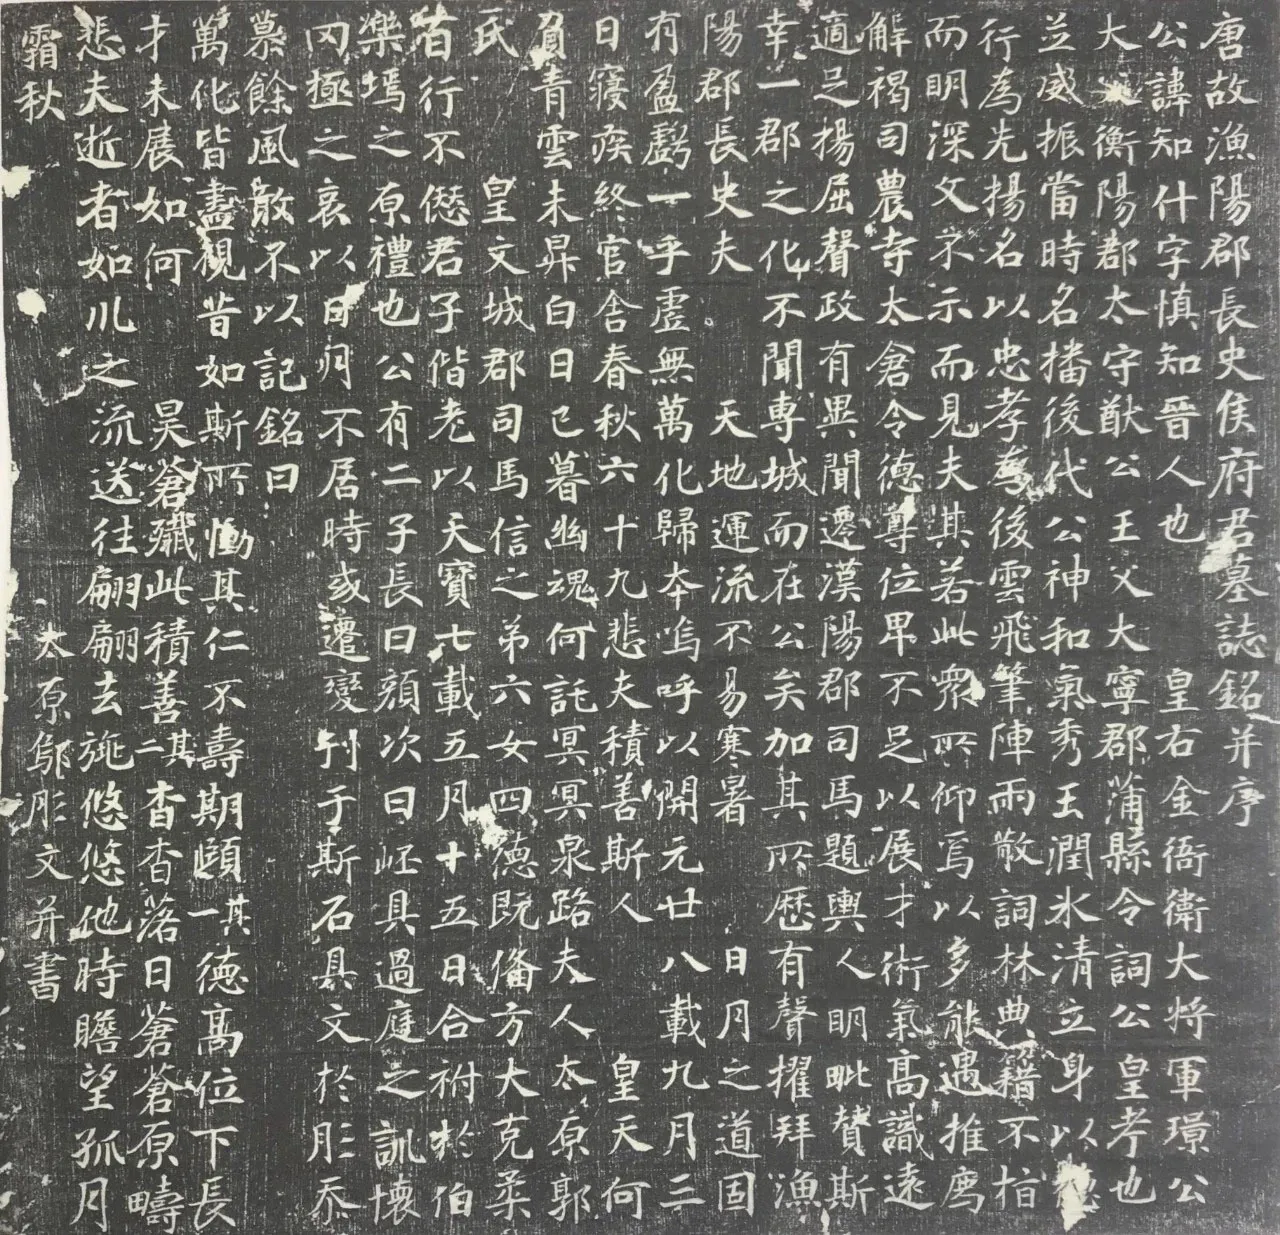 唐故漁陽郡長史侯府君墓誌銘并序
公諱知什字慎知晉人也 皇右金吾衛大將軍璟公
大父衡陽郡太守猷公王父大寧郡蒲縣令詞公皇考也
並威振當時名播後代公神和氣秀玉潤氷清立身以德
行為先揚名以忠孝為後雲飛筆陣雨散詞林典籍不相
而明深文不示而見夫其若此衆所仰焉以多能遇推薦
解褐司農寺太倉令德尊位卑不足以展才術氣高識遠
適足揚屈聲政有異聞遷漢陽郡司馬題輿人明毗贊斯
幸一郡之化不聞專城而在公矣加其所歷有聲擢拜漁
陽郡長史夫 天地運流不易寒暑 日月之道固
有盈虧一乎虛無萬化歸本嗚呼以開元廿八載九月二
日寢疾終官舍春秋六十九悲夫積善斯人 皇天何
負青雲未昇白日已暮幽魂何託冥冥泉路夫人太原郭
氏 皇文城郡司馬信之弟六女四德既俻方大克柔
苔行不僁君子偕老以天寶七載五月十五日合祔於伯
樂塢之原禮也公有二子長曰顔次曰岯具過庭之訓懷
罔極之哀以日月不居時或遷變刊于斯石具文於彤忝
慕餘風敢不以記銘曰
萬化皆盡視昔如斯所慟其仁不壽期頤其一德高位下長
才未展如何 昊蒼殲此積善其二杳杳落日蒼蒼原疇
悲夫逝者如川之流送往翩翩去旐悠悠他時瞻望孤月
霜秋 太原鄔彤文并書